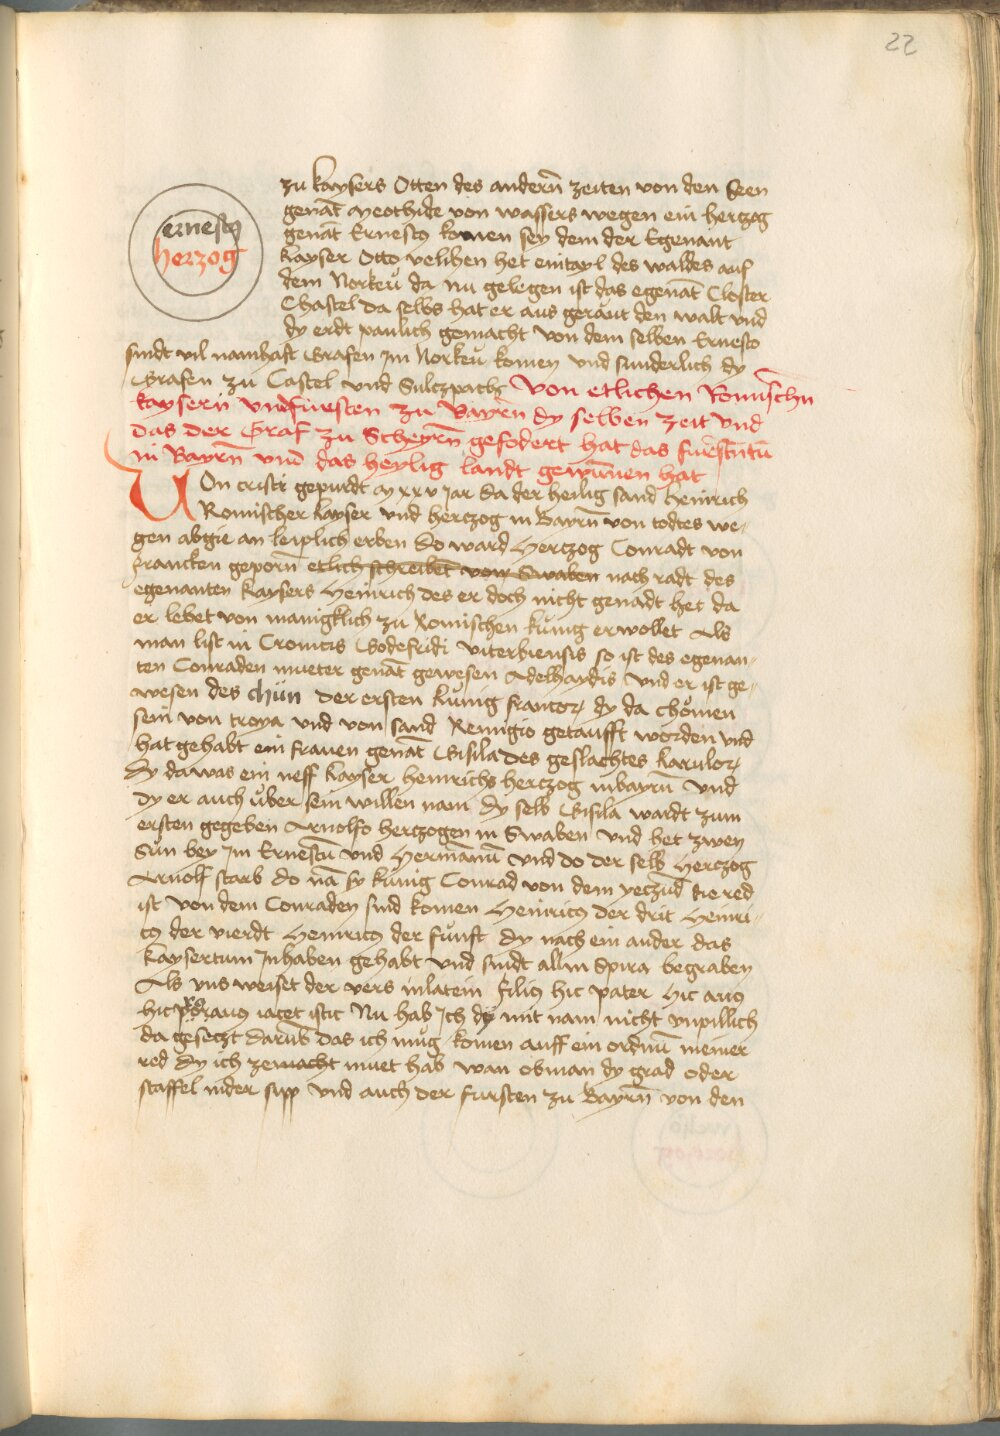 22
ernestus
herzog
zu kaysers Otten des andern̄ zeiten von den Seen
genāt Meothide von wassers wegen ein herczog
genāt Ernestus komen sey dem der Egenant
kayser Otto velihen het eintayl des waldes auf
dem Norkeu da nu gelegen ist das egenāt Closter
Chastel da selbs hat er aus geraut den walt vnd
dy erdt paulich gemacht von dem selben Ernesto
sindt vil namhaft Grafen jm Norkeu komen vnd sunderlich dy
Grafen zu Castel vnd Sulczpach Von etlichen Romischn̄
kaysern̄ vnd fuersten zu Bayrn̄ dy selben zeit vnd
das der Graf zu Scheyrn̄ gefodert hat das furstn̄tū
in Bayrn̄ vnd das heylig landt gewūnen hat
Von cristi gepurdt M xxv jar da der heilig sand Heinrich
Romischer kayser vnd herczog in Bayrn̄ von todtes we-
gen abgie an leiplich erben do ward Herczog Conradt von
francken geporn̄ etlich schreibēt von Swaben nach radt des
egenanten kaysers Heinrich des er doch nicht genadt het da
er lebet von manigklich zu Romischen kunig erwollet Als
man list in Cronicis Godefridi viterbiensis so ist des egenan-
ten Conraden mueter genāt gewesen Adelhaydis vnd er ist ge-
wesen des chün der ersten kunig francor dy da chömen
sein von troya vnd von sand Remigio getaufft worden vnd
hat gehabt ein frauen genāt Gisila des geslachtes karulor
Dy da was ein neff kayser heinrichs herczog in bayrn̄ vnd
dy er auch über sein willen nam dy selb Gisila wardt zum
ersten gegeben Arnolfo herczogen in Swaben vnd het zwen
Sün bey jm Ernestū vnd Hermānū vnd do der selb Herczog
Arnolf starb do nā sy kunig Conrad von dem yeczūd die red
ist von dem Conraden sind komen Heinricus der drit Heinri-
cus der vierdt Heinricus der funft dy nach ein ander das
kaysertum Jnhaben gehabt vnd sindt all in Spira begraben
Als vns weiset der vers in latein filius hic pater Hic auus
hic proauus iacet istic Nu hab Ich dy mit nam nicht vnpillich
da geseczt darūb das ich müg komen auff ein ordnū meiner
red dy ich zemacht muet hab wan ob man dy grad oder
staffel nider sipp vnd auch der fursten zu Bayrn̄ von den